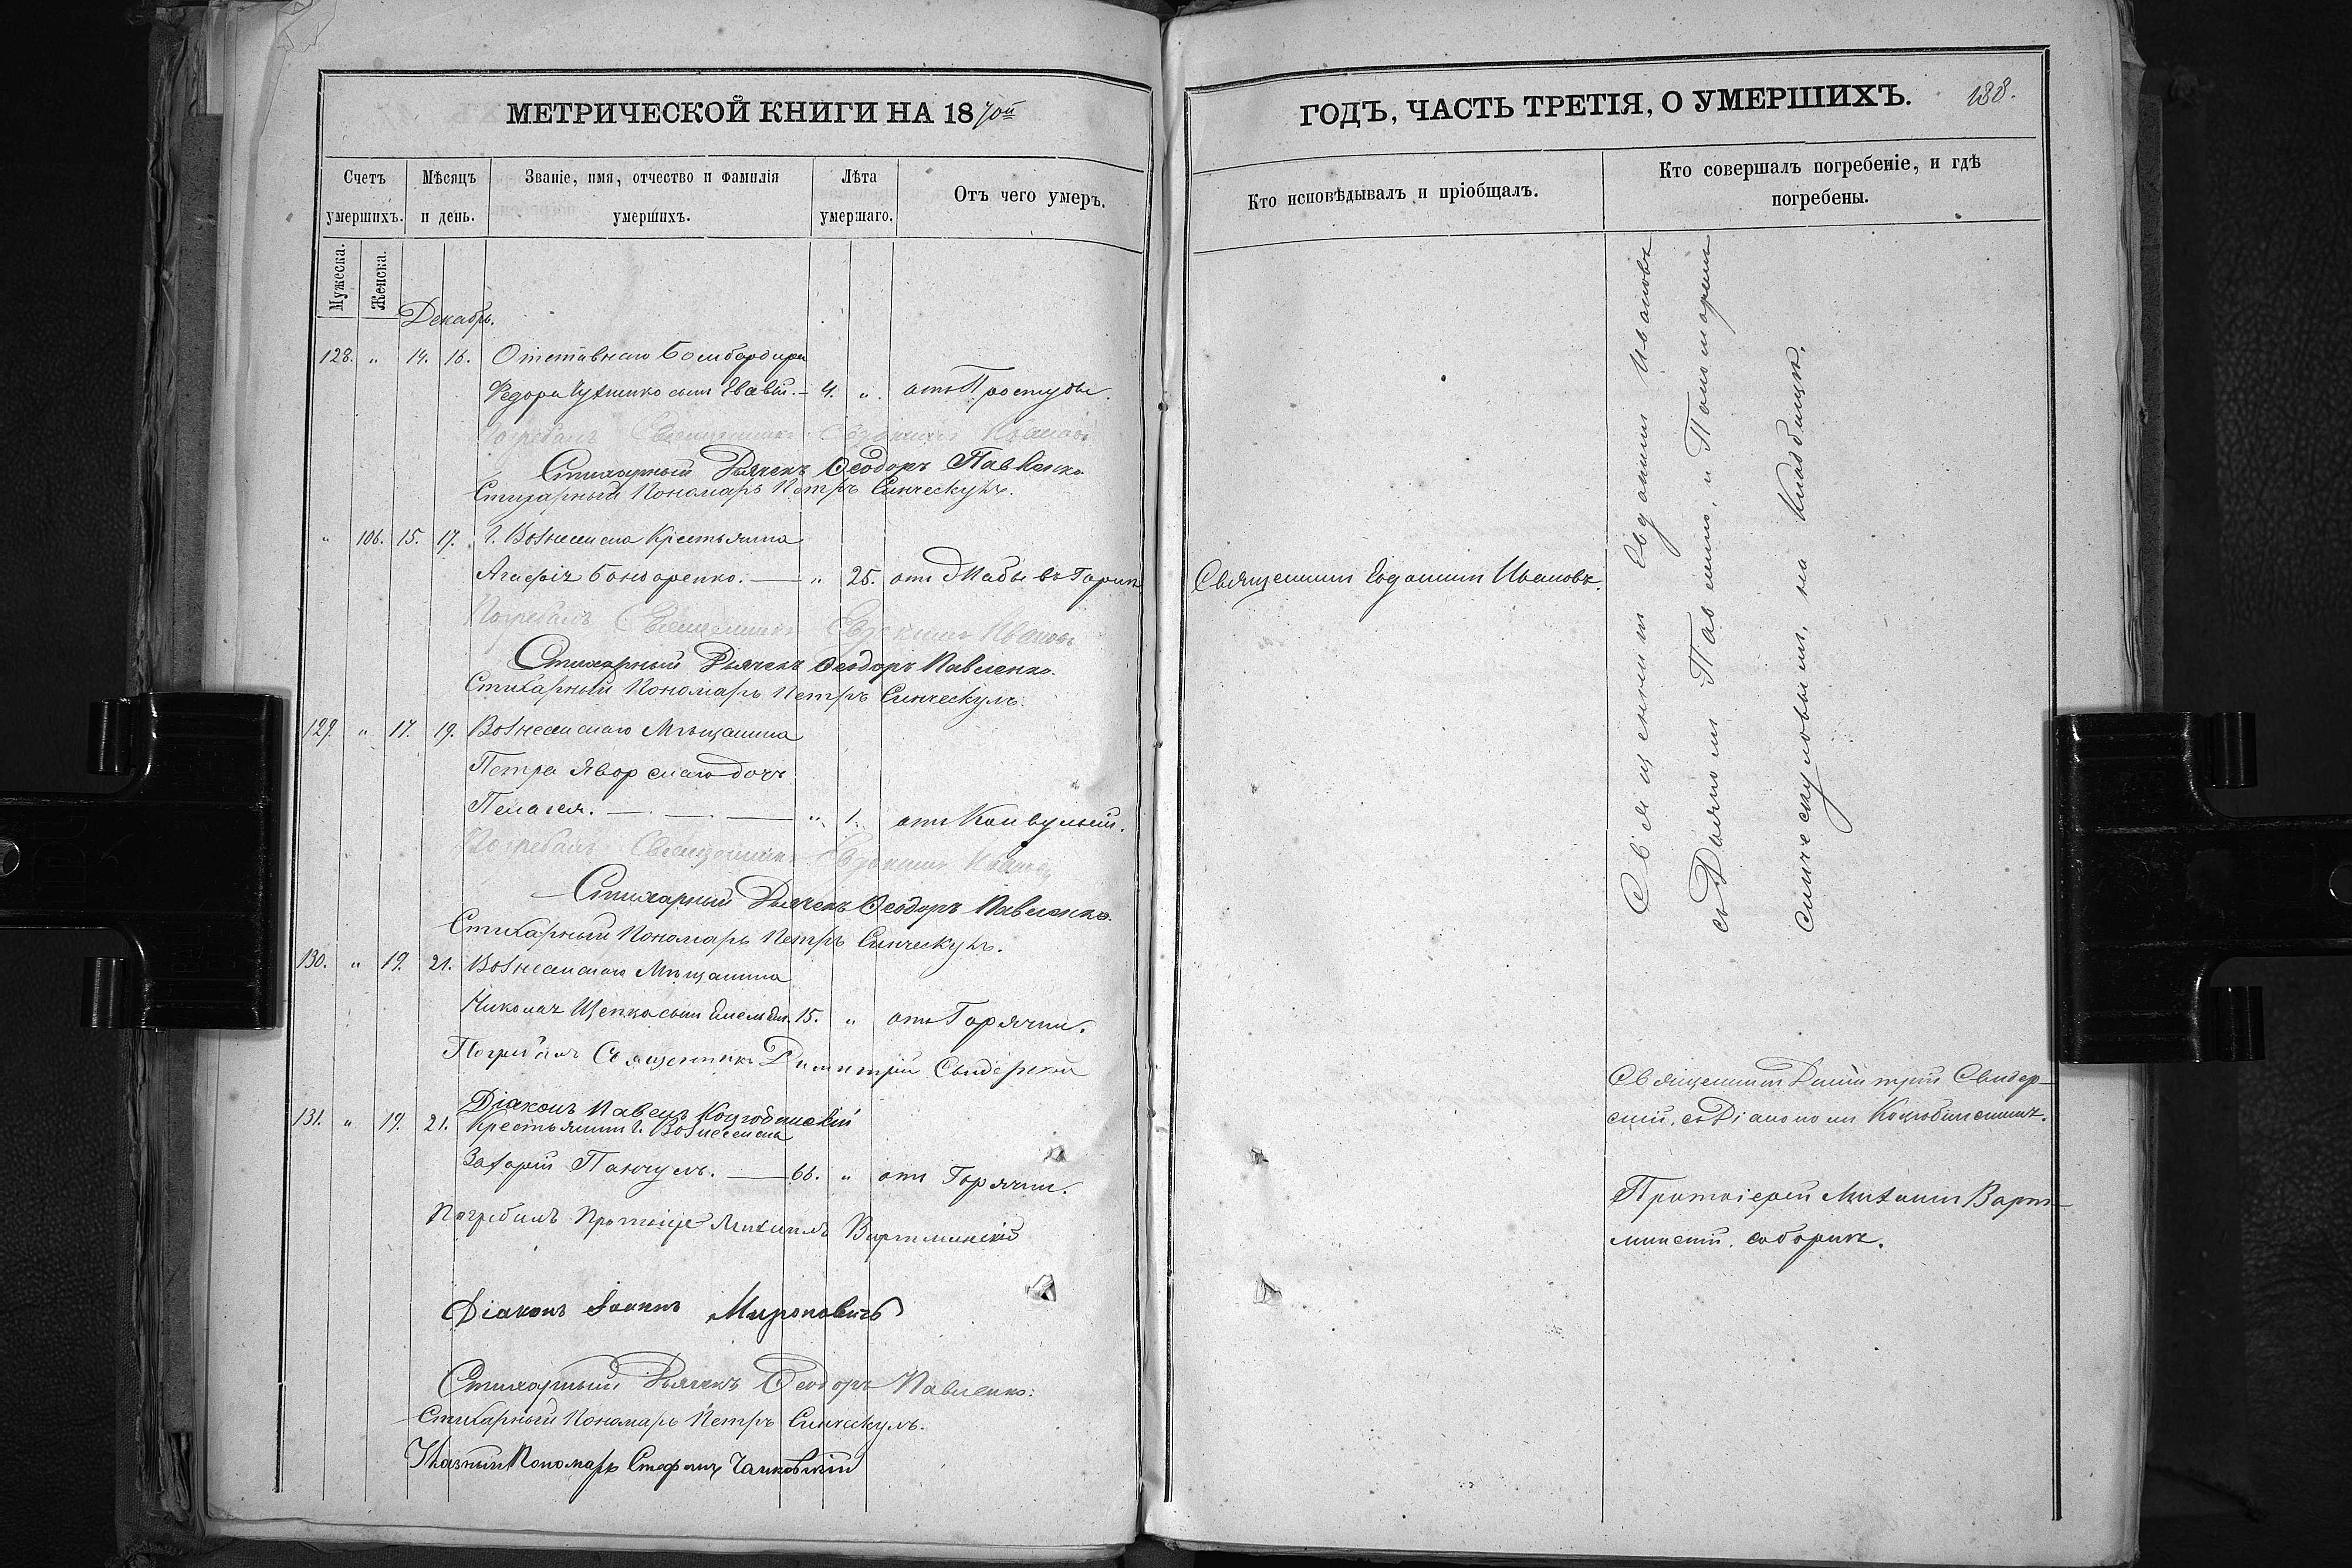 МЕТРИЧЕСКОЙ КНИГИ НА 1870й
Счетъ умершихъ.
Мѣсяцъ и день.
Званіе, имя, отчество и фамилія умершихъ.
Лѣта умершаго.
Отъ чего умеръ.
Мужеска.
Женска.
Декабрь.
128. „ 14. 16. Отставнаго Бомбардира
Федора сынъ 4. „ отъ Простуды.
Погребалъ Священникъ Евдокимъ Ивановъ
Стихарный Дьячекъ Ѳеодоръ Павленко
Стихарный Пономарь Петръ Синческулъ.
„ 106. 15. 17. г. Вознесенска Крестьянка
Агафія Бондаренко. — „ 25. отъ Жабы въ Горлѣ
Погребалъ Священникъ Евдокимъ Ивановъ
Стихарный Дьячекъ Ѳеодоръ Павленко.
Стихарный Пономарь Петръ Синческулъ.
129. „ 17. 19. Вознесенскаго Мѣщанина
Петра Яворскаго дочь
Пелагея. — — — „ 1. отъ Конвульсій.
Погребалъ Священникъ Евдокимъ Ивановъ
Стихарный Дьячекъ Ѳеодоръ Павленко.
Стихарный Пономарь Петръ Синческулъ.
130. „ 19. 21. Вознесенскаго Мѣщанина
Николая Щепка сынъ 15. „ отъ Горячки.
Погребалъ Священникъ Димитрій Свидерскій
Діаконъ Павелъ
131. „ 19. 21. Крестьянинъ г. Вознесенска
Захарій Панчулъ. — 66. „ отъ Горячки.
Погребалъ Протоіерей Михаилъ Вартминскій
Діаконъ Іоаннъ Мироновичъ
Стихарный Дьячекъ Ѳеодоръ Павленко.
Стихарный Пономарь Петръ Синческулъ.
Указный Пономарь Стефанъ Чайковскій
ГОДЪ, ЧАСТЬ ТРЕТІЯ, О УМЕРШИХЪ. 188.
Кто исповѣдывалъ и пріобщалъ.
Кто совершалъ погребеніе, и гдѣ погребены.
Священникъ Евдокимъ Ивановъ.
Священникъ Евдокимъ Ивановъ
съ Дьячкомъ Павленко, и Пономаремъ
Синческуловымъ, на Кладбищѣ.
Священникъ Димитрій Свидер-
скій, съ Діакономъ
Протоіерей Михаилъ Варт-
минскій. соборнѣ.